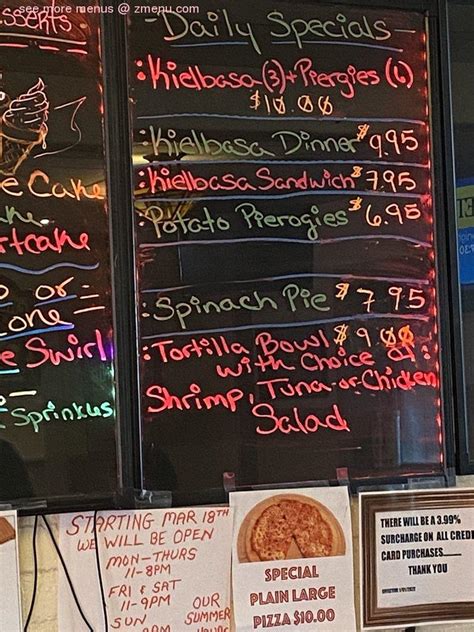 see more menus @ zmenu.com
Sserts.
e Cake
ke.
rtcake
or
one
e Swirl
Sprinkles
Daily Specials
Kielbasa (3) + Piergies (6)
$10.00
Kielbasa Dinner $9.95
Kielbasa Sandwich $7.95
Potato Pierogies $6.95
Spinach Pie $7.95
Tortilla Bowl $9.00
with Choice of:
Shrimp, Tuna or Chicken
Salad
STARTING MAR 18TH
WE WILL BE OPEN
MON-THURS
11-8PM
FRI & SAT
11-9PM
SUN
OUR
SUMMER
SPECIAL
PLAIN LARGE
PIZZA $10.00
THERE WILL BE A 3.99%
SURCHARGE ON ALL CREDI
CARD PURCHASES.......
THANK YOU